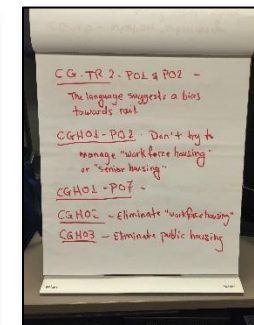 CG-TR2-PO1 & PO2 -
The language suggests a bias
towards rail
CGHO1-PO2. Don't try to
manage "workforce housing"
or "senior housing"
CGHO1-PO7 -
CGHO2 - Eliminate "workforce housing"
CGHO3 - Eliminate public housing